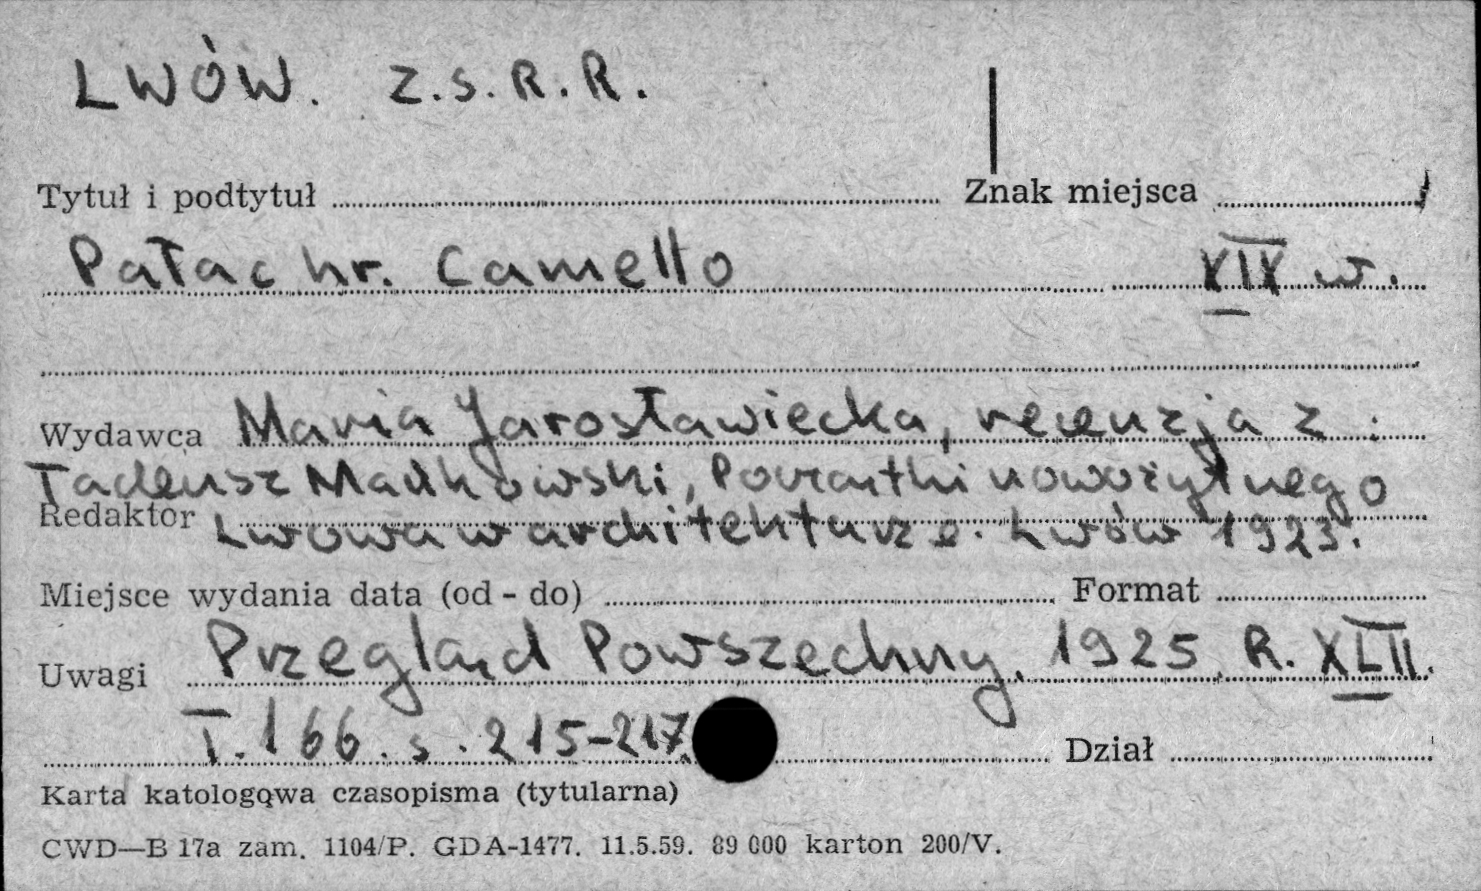 LWÓW. Z.S.R.R.
Tytuł i podtytuł Znak miejsca
Pałac hr. Camello XIX w.
Wydawca Maria Jarosławiecka, recenzja z:
Tadeusz Mańkowski, Początki nowożytnego
Redaktor Lwowa w architekturze. Lwów 1923.
Miejsce wydania data (od - do) Format
Uwagi Przegląd Powszechny. 1925. R. XLII.
T. 166. s. 215-217. Dział
Karta katologowa czasopisma (tytularna)
CWD—B 17a zam. 1104/P. GDA-1477. 11.5.59. 89 000 karton 200/V.